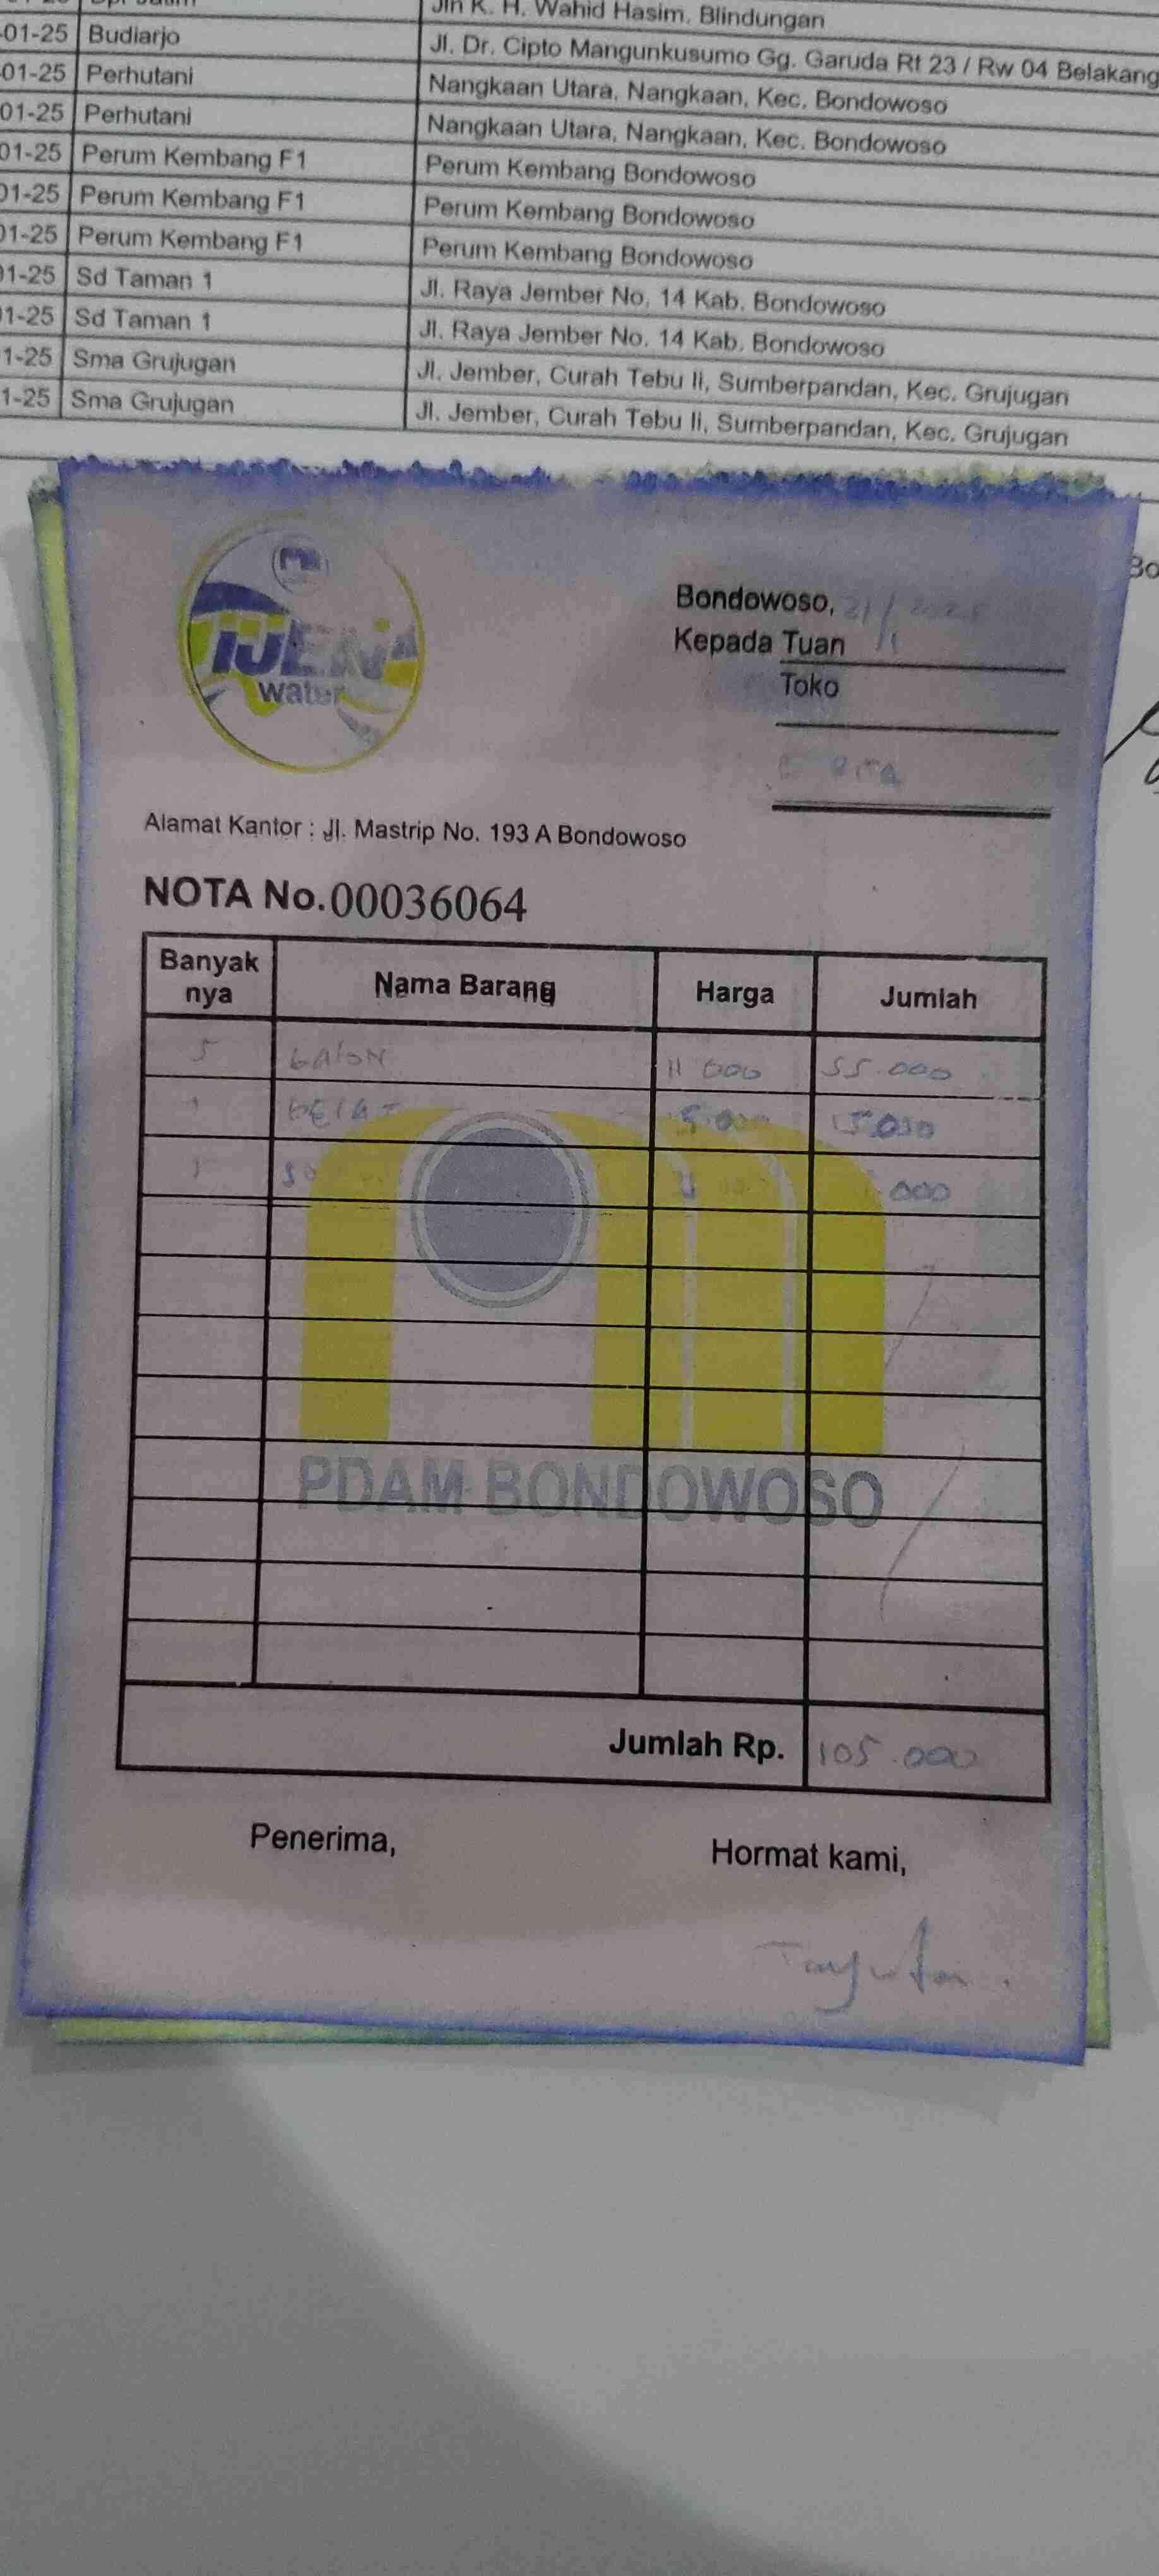 Jln K. H. Wahid Hasim. Blindungan
-01-25 Budiarjo Jl. Dr. Cipto Mangunkusumo Gg. Garuda Rt 23 / Rw 04 Belakang
01-25 Perhutani Nangkaan Utara, Nangkaan, Kec. Bondowoso
01-25 Perhutani Nangkaan Utara, Nangkaan, Kec. Bondowoso
01-25 Perum Kembang F1 Perum Kembang Bondowoso
01-25 Perum Kembang F1 Perum Kembang Bondowoso
01-25 Perum Kembang F1 Perum Kembang Bondowoso
01-25 Sd Taman 1 Jl. Raya Jember No. 14 Kab. Bondowoso
1-25 Sd Taman 1 Jl. Raya Jember No. 14 Kab. Bondowoso
1-25 Sma Grujugan Jl. Jember, Curah Tebu Ii, Sumberpandan, Kec. Grujugan
1-25 Sma Grujugan Jl. Jember, Curah Tebu Ii, Sumberpandan, Kec. Grujugan
IJEN
water
Bondowoso,
Kepada Tuan
Toko
Alamat Kantor : Jl. Mastrip No. 193 A Bondowoso
NOTA No.00036064
Banyak nya Nama Barang Harga Jumlah
5 GALON 11 000 55.000
000
PDAM BONDOWOSO
Jumlah Rp. 105.000
Penerima, Hormat kami,